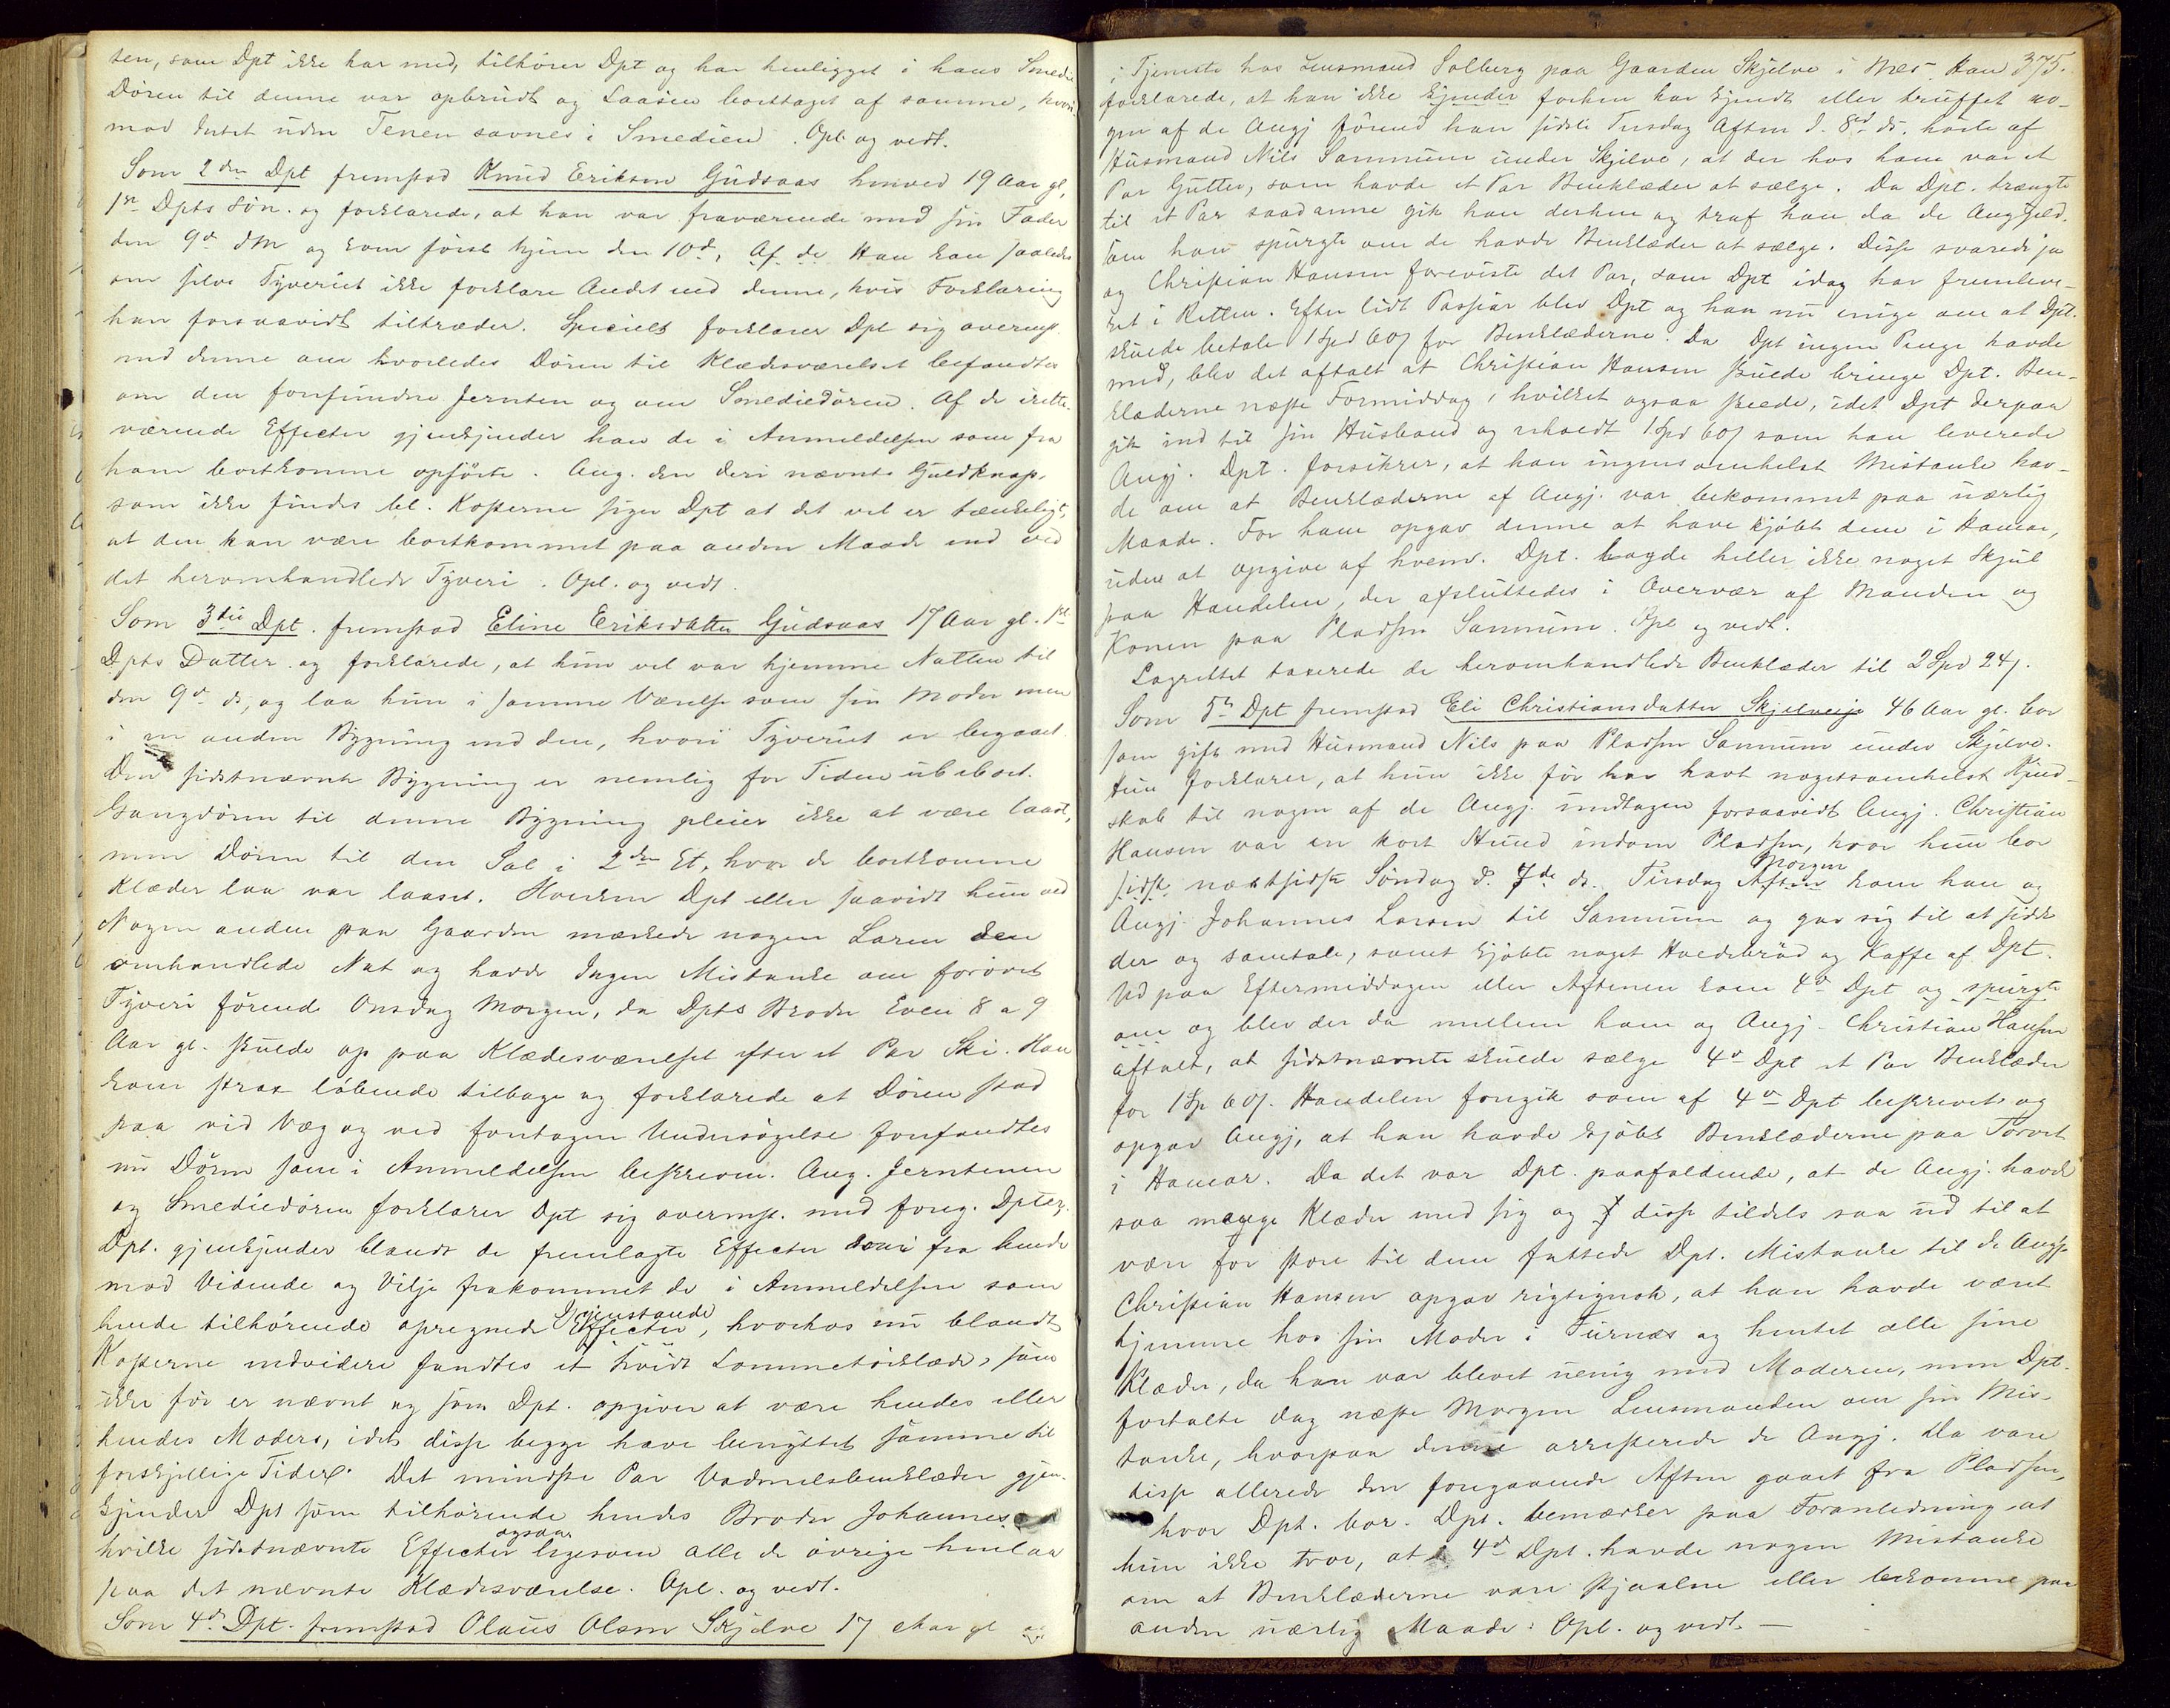 ten, som Dpt ikke har med, tilhører Dpt og har henligget i hans Smedie
Døren til denne var opbrudt og Laasen borttaget af samme, hvori
mod Intet uden Tenen savnes i Smedien. Opl. og vedt.
Som 2den Dpt fremstod Knud Eriksen Gudsaas henved 19 Aar gl,
1ste Dpts Søn. og forklarede, at han var fraværende med sin Fader
den 9de dM og kom først hjem den 10d, Af de Han kan saaledes
om selve Tyveriet ikke forklare Andet end denne, hvis Forklaring
han forsaavidt tiltræder. Specielt forklarer Dpt sig overenst.
med denne om hvorledes Døren til Klædesværelset befandtes
om den forefundne Jernten og om Smediedøren. Af de irette-
værende Effecter gjenkjender han de i Anmeldelsen som fra
ham bortkomne opførte. Ang. den deri nævnte Guldknap,
som ikke findes bl. Kosterne siger Dpt at det vel er tænkeligt,
at den kan være bortkommet paa anden Maade end ved
det heromhandlede Tyveri. Opl. og vedt.
Som 3die Dpt. fremstod Eline Eriksdatter Gudsaas 17 Aar gl. 1ste
Dpts Datter og forklarede, at hun vel var hjemme Natten til
den 9de ds, og laa hun i samme Værelse som sin Moder men
i en anden Bygning end den, hvori Tyveriet er begaaet.
Den sidstnævnte Bygning er nemlig for Tiden ubeboet.
Gangdøren til denne Bygning pleier ikke at være laast,
men Døren til den Sal i 2den Et, hvor de bortkomne
Klæder laa var laaset. Hverken Dpt eller saavidt hun ved
Nogen anden paa Gaarden mærkede nogen Larm den
omhandlede Nat og havde Ingen Mistanke om forøvet
Tyveri førend Onsdag Morgen, da Dpts Broder Even 8 a 9
Aar gl. skulde op paa Klædesværelset efter et Par Ski. Han
kom strax løbende tilbage og forklarede at Døren stod
paa vid Væg og ved foretagen Undersøgelse forefandtes
nu Døren som i Anmeldelsen beskreven. Ang. Jerntenen
og Smediedøren forklarer Dpt sig overenst. med foreg. Dpter.
Dpt. gjenkjender blandt de fremlagte Effecter som fra hende
mod Vidende og Vilje frakommet de i Anmeldelsen som
hende tilhørende opregnede Effecter Gjenstande, hvorhos nu blandt
Kosterne endvidere fandtes et hvidt Lommetørklæde, som
ikke før er nævnt og som Dpt. opgiver at være hendes eller
hendes Moders, idet disse begge have benyttet samme til
forskjellige Tider. Det mindste Par Vadmelsbenklæder gjen-
kjender Dpt som tilhørende hendes Broder Johannes
hvilke sidstnævnte Effecter ogsaa ligesom alle de øvrige henlaa
paa det nævnte Klædesværelse. Opl. og vedt.
Som 4de Dpt. fremstod Olaus Olsen Skjelve 17 Aar gl og
375.
i Tjeneste hos Lensmand Solberg paa Gaarden Skjelve i Næs. Han
forklarede, at han ikke kjender forhen har kjendt eller truffet no-
gen af de Angj førend han sidste Tirsdag Aften d. 8de ds. hørte af
Husmand Nils Sannum under Skjelve, at der hos ham var et
Par Gutter, som havde et Par Benklæder at sælge. Da Dpt. trængte
til et Par saadanne gik han derhen og traf han da de Angjæld.
som han spurgte om de havde Benklæder at sælge. Disse svarede ja
og Christian Hansen foreviste det Par, som Dpt idag har fremleve-
ret i Retten. Efter lidt Passiar blev Dpt og han nu enige om at Dpt.
skulde betale 1 Spd 60 s for Benklæderne. Da Dpt ingen Penge havde
med, blev det aftalt at Christian Hansen skulde bringe Dpt. Ben-
klæderne næste Formiddag, hvilket ogsaa skede, idet Dpt derpaa
gik ind til sin Husbond og erholdt 1 Spd 60 s som han leverede
Angj. Dpt. forsikrer, at han ingensomhelst Mistanke hav-
de om at Benklæderne af Angj. var bekommet paa uærlig
Maade. For ham opgav denne at have kjøbt dem i Hamar,
uden at opgive af hvem. Dpt. lagde heller ikke noget Skjul
paa Handelen, der afsluttedes i Overvær af Manden og
Konen paa Pladsen Sannum. Opl og vedt.
Lagrettet taxerede de heromhandlede Benklæder til 2 Spd 24 s.
Som 5te Dpt fremstod Eli Christiansdatter Skjelveeje 46 Aar gl. bor
som gift med Husmand Nils paa Pladsen Sannum under Skjelve.
Hun forklarer, at hun ikke før har havt nogetsomhelst Kjend-
skab til nogen af de Angj. undtagen forsaavidt Angj. Christian
Hansen var en kort Stund indom Pladsen, hvor hun bor
sidst næstsidste Søndag d. 7de ds. Tirsdag Aften Morgen kom han og
Angj. Johannes Larsen til Sannum og gav sig til at sidde
der og samtale, samt kjøbte noget Hvedebrød og Kaffe af Dpt.
Ud paa Eftermiddagen eller Aftenen kom 4de Dpt og spurgte
om og blev der da mellem ham og Angj. Christian Hansen
aftalt, at sidstnævnte skulde sælge 4de Dpt et Par Benklæder
for 1 Sp 60 s. Handelen foregik som af 4de Dpt beskrevet og
opgav Angj, at han havde kjøbt Benklæderne paa Torvet
i Hamar. Da det var Dpt. paafaldende, at de Angj. havde
saa mange Klæder med sig og disse tildels saa ud til at
være for store til dem fattede Dpt. Mistanke til de Angj.
Christian Hansen opgav rigtignok, at han havde været
hjemme hos sin Moder i Furnæs og hentet alle sine
Klæder, da han var blevet uenig med Moderen, men Dpt.
fortalte dog næste Morgen Lensmanden om sin Mis-
tanke, hvorpaa denne arresterede de Angj. Da vare
disse allerede den foregaaende Aften gaaet fra Pladsen,
hvor Dpt. bor. Dpt. bemærker paa Foranledning at
hun ikke tror, at 4de Dpt. havde nogen Mistanke
om at Benklæderne vare stjaalne eller bekomne paa
anden uærlig Maade. Opl. og vedt. —